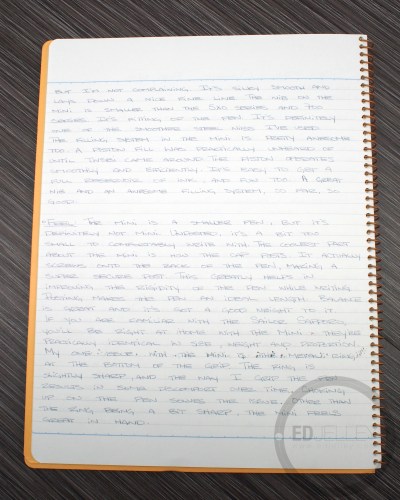 BUT I'M NOT COMPLAINING. IT'S SILKY SMOOTH AND
LAYS DOWN A NICE FINE LINE. THE NIB ON THE
MINI IS SMALLER THAN THE 580 SERIES AND 700
IT'S FITTING OF THE PEN. IT'S DEFINITELY
ONE OF THE SMOOTHER STEEL NIBS I'VE USED.
THE FILLING SYSTEM IN THE MINI IS PRETTY AWESOME
TOO. A PISTON FILL WAS PRACTICALLY UNHEARD OF
UNTIL TWSBI CAME AROUND. THE PISTON OPERATES
SMOOTHLY AND EFFICIENTLY. IT'S EASY TO GET A
FULL RESERVOIR OF INK AND FUN TOO. A GREAT
NIB AND AN AWESOME FILLING SYSTEM, SO FAR, SO
GOOD.
FEEL: THE MINI IS A SMALLER PEN, BUT IT'S
DEFINITELY NOT MINI. UNPOSTED, IT'S A BIT TOO
SMALL TO COMFORTABLY WRITE WITH. THE COOLEST PART
ABOUT THE MINI IS HOW THE CAP POSTS. IT ACTUALLY
SCREWS ONTO THE BACK OF THE PEN, MAKING A
SUPER SECURE POST. THIS GREATLY HELPS IN
IMPROVING THE RIGIDITY OF THE PEN WHILE WRITING.
POSTING MAKES THE PEN AN IDEAL LENGTH. BALANCE
IS GREAT AND IT'S GOT A GOOD WEIGHT TO IT.
IF YOU ARE FAMILIAR WITH THE SAILOR SAPPORO,
YOU'LL BE RIGHT AT HOME WITH THE MINI. THEY'RE
PRACTICALLY IDENTICAL IN SIZE, WEIGHT AND PROPORTION.
MY ONLY ISSUE WITH THE MINI IS THE METAL RING
AT THE BOTTOM OF THE GRIP. THE RING IS
SLIGHTLY SHARP, AND THE WAY I GRIP THE PEN
RESULTS IN SOME DISCOMFORT OVER TIME.
UP ON THE PEN SOLVES THE ISSUE. OTHER THAN
THE RING BEING A BIT SHARP, THE MINI FEELS
SUPER IN HAND.
ED JELLEY